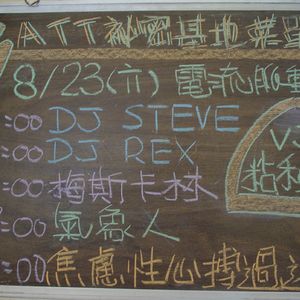 ATT 祕密基地
8/23(六) 電流
:00 DJ STEVE
:00 DJ REX
:00 梅斯卡林
:00 氣象人
:00 焦慮性心搏過
VJ
粘